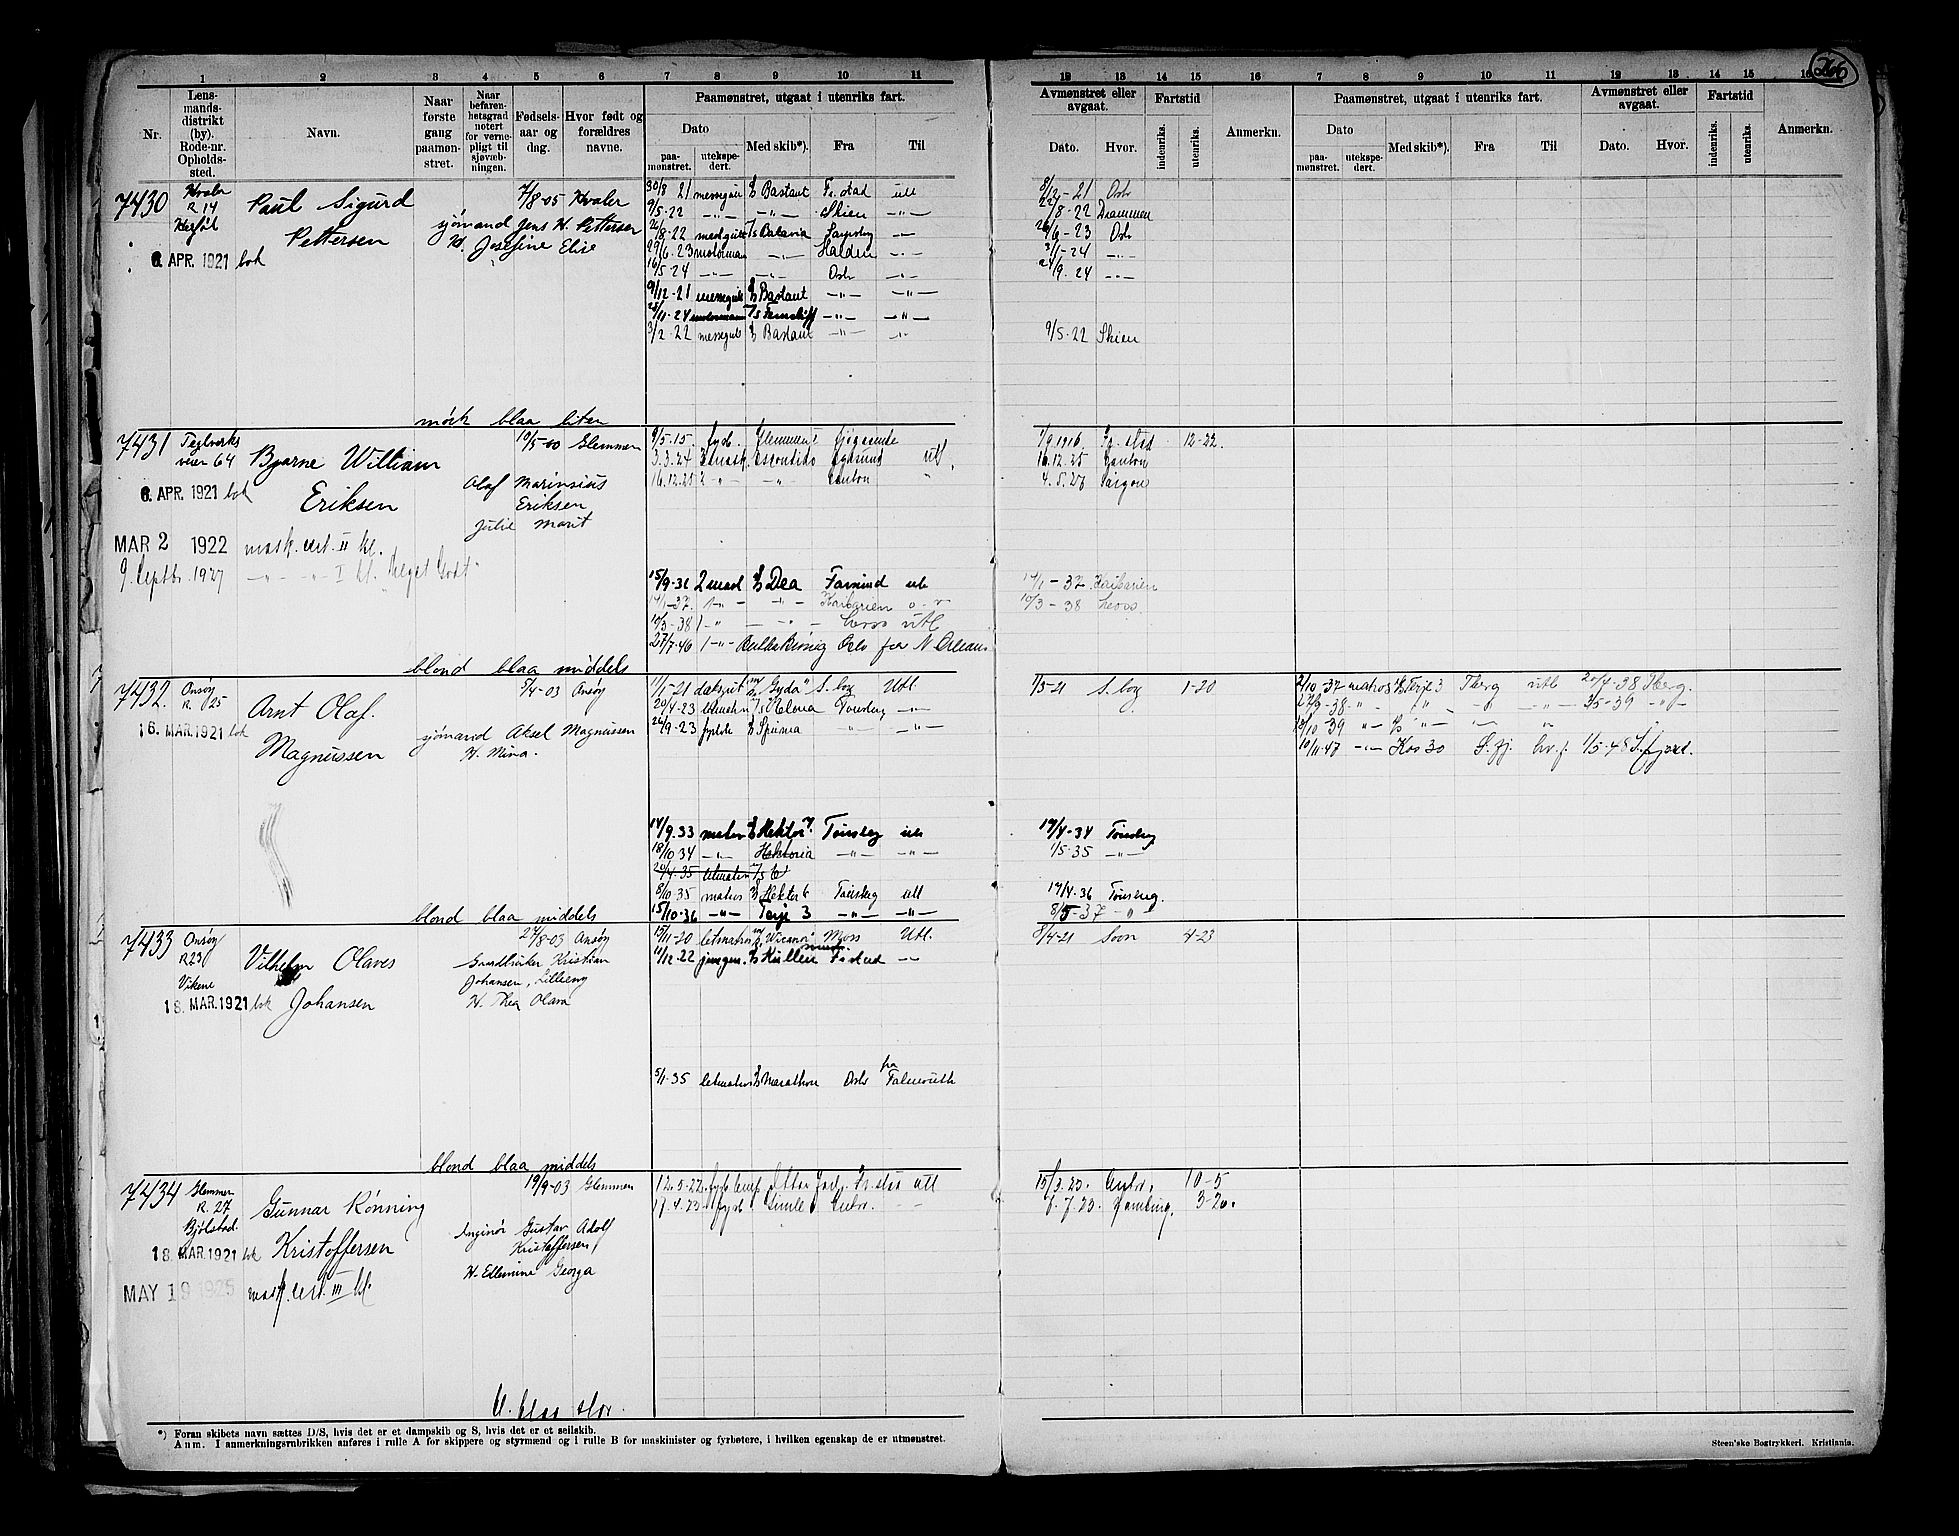 266
1 2 3 4 5 6 7 8 9 10 11 12 13 14 15 16 7 8 9 10 11 12 13 14 15 16
Nr.
Lensmandsdistrikt (by). Rode-nr. Opholdssted.
Navn.
Naar første gang paamønstret.
Naar befarenhetsgrad notert for vernepligt til sjøvæbningen.
Fødselsaar og dag.
Hvor født og forældres navne.
Paamønstret, utgaat i utenriks fart.
Dato
paamønstret. utekspedert.
Med skib*). Fra Til
Avmønstret eller avgaat.
Dato. Hvor.
Fartstid
indenriks. utenriks.
Anmerkn.
Paamønstret, utgaat i utenriks fart.
Dato
paamønstret. utekspedert.
Med skib*). Fra Til
Avmønstret eller avgaat.
Dato. Hvor.
Fartstid
indenriks. utenriks.
Anmerkn.
7430 Hvaler R 14
Paul Sigurd Pettersen
7/8-05 Hvaler
sjömand Jens H. Pettersen
H. Josefine Elise
6. APR. 1921 bok
30/8 21 messegut Bastant Fr.stad utl 8/12-21 Oslo
9/5-22 -"- -"- Skien -"- 22/8-22 Drammen
26/8-22 Batavia Sarpsborg -"- 26/6-23 Oslo
29/6-23 motorman -"- Halden -"- 3/1-24 -"-
16/5-24 -"- -"- Oslo -"- 24/9-24 -"-
9/12-21 messegut Bastant -"- -"-
28/11-24 -"- -"-
3/2-22 messegut Bastant -"- -"- 9/5-22 Skien
mörk blaa liten
7431 Teglverksveien 64
Bjarne William Eriksen
10/5-00 Glemmen
Olaf Marinsius Eriksen
Julie Marit
6. APR. 1921 bok
MAR 2 1922 mask. cert. II kl.
9. Septbr. 1927 -"- -"- I kl.
9/5-15 fyrb. Glemmen 1/9 1916 Fr. stad 12-22.
3.3.24 Escondido utl. 16.12.25 Canton
16.12.25 2 -"- -"- Canton " Saigon
15/9-31 2 mask Dea Farsund utl 14/1-37
14/1-37 1 -"- -"- 10/3-38
10/3-38 1 -"- -"- utl
27/7-46 1 -"- Oslo for N. Orleans
blond blaa middels
7432. Onsöy R. 25
Arnt Olaf. Magnussen
5/4-03 Onsöy
sjömand Aksel Magnussen
H. Mina.
16. MAR. 1921 bok
11/1-21 dæksgut "Gyda" S. bog Utl. 7/5-21 S. bog 1-20
20/4-23 letmatr Helena Tönsberg -"-
26/9-23 fyrb Spuma -"-
14/9-33 matros Hektor 7. Tönsberg utl 19/4-34 Tönsberg
18/10 34 -"- Hektoria -"- -"- 1/5-35 -"-
20/4-35 letmatr
8/10 35 matros Hektor 6 Tönsberg utl 17/4-36 Tönsberg.
15/10-36 -"- Terje 3 -"- -"- 8/5-37 -"-
2/10-37 matros Terje 3 Tberg utl 20/4-38 Tberg.
27/9-38 -"- -"- -"- -"- 3/5-39 -"-
-"- -"-
10/11-47 -"- Kos 30 S. fj. hv. f. 1/5-48 S. fjord.
blond blaa middels
7433 Onsöy R23 Vikene
Vilhelm Olaves Johansen
24/8-03 Onsöy
Grundbruker Kristian Johansen, Lilleeng
H. Thea Olava
18. MAR. 1921 bok
15/11-20 letmatros Moss Utl. 8/4-21 Soon 4-23
11/12-22 jungm. Kullen Fr.stad -"-
5/1-35 letmatros Marathon Oslo fra Falmouth
blond blaa middels
7434 Glemmen R. 27 Bjölstad.
Gunnar Rönning Kristoffersen
19/9-03 Glemmen
Ingeniör Gustav Adolf Kristoffersen,
H. Ellemine Georga
18. MAR. 1921 bok
MAY 19 1925 mask. cert. III kl.
12.5-22 Fr. stad utl 15/3.23. Antw. 10-5
17.4.23 fyrb. Gimle Antw. -"- 6.7.23. Hamburg. 3-20.
bl. blaa stor.
*) Foran skibets navn sættes D/S, hvis det er et dampskib og S, hvis det er et seilskib.
Anm. I anmerkningsrubrikken anføres i rulle A for skippere og styrmænd og i rulle B for maskinister og fyrbøtere, i hvilken egenskap de er utmønstret.
Steen'ske Bogtrykkeri. Kristiania.